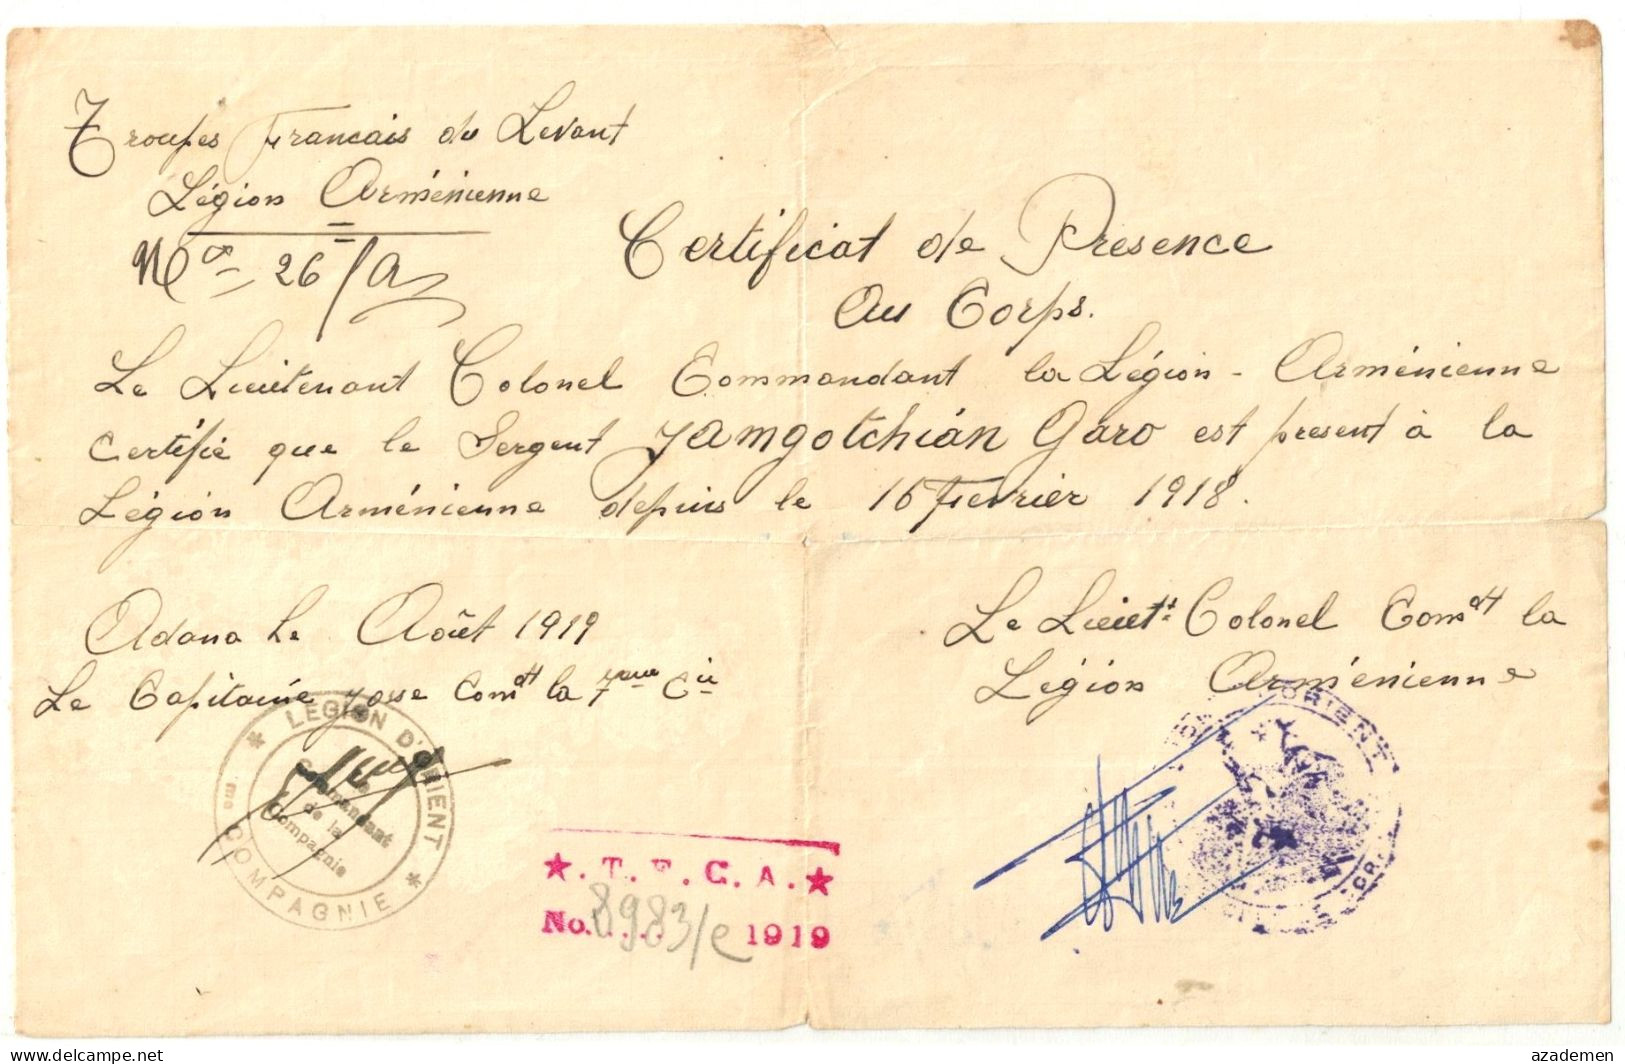 Troupes Francais du Levant
Légion Arménienne
No 26/a
Certificat de Presence
Au Corps.
Le Lieutenant Colonel Commandant la Légion - Arménienne
certifie que le Sergent Yamgotchián Garo est présent à la
Légion Arménienne depuis le 16 Fevrier 1918.
Adana Le Août 1919
Le Capitaine Comdt la 7eme Cie
Le Lieutt Colonel Comdt la
Légion Arménienne
LÉGION D'ORIENT
COMPAGNIE
Le
Commandant
de la
Compagnie
me
ORIENT
★. T. F. C. A. ★
No. 8983/e 1919
azademen